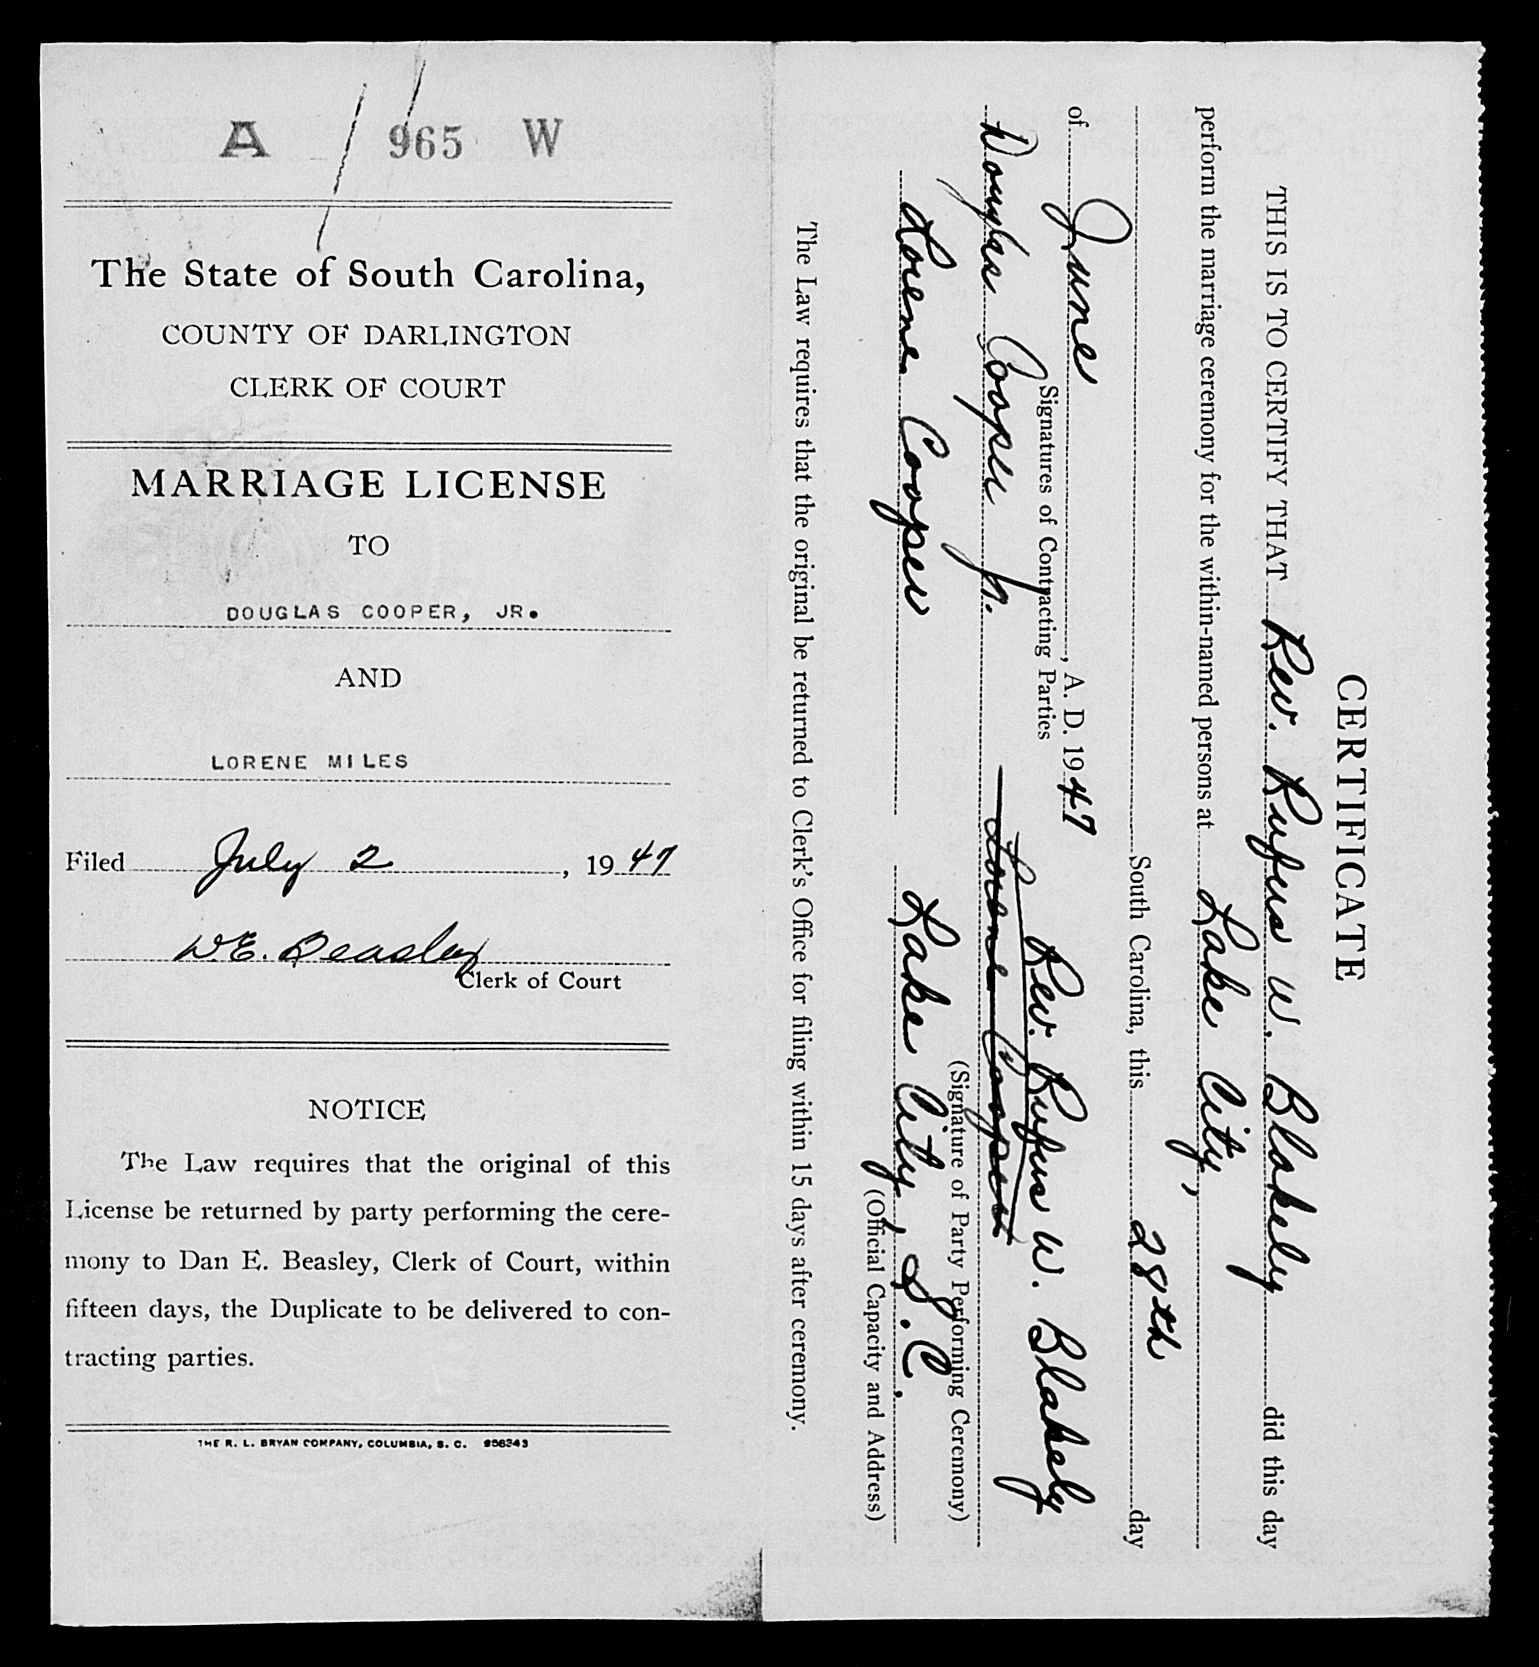 A 965 W
The State of South Carolina,
COUNTY OF DARLINGTON
CLERK OF COURT
MARRIAGE LICENSE
TO
DOUGLAS COOPER, JR.
AND
LORENE MILES
Filed July 2, 1947
W.E. Beasley
Clerk of Court
NOTICE
The Law requires that the original of this
License be returned by party performing the cere-
mony to Dan E. Beasley, Clerk of Court, within
fifteen days, the Duplicate to be delivered to con-
tracting parties.
THE R. L. BRYAN COMPANY, COLUMBIA, S. C. 956343
CERTIFICATE
THIS IS TO CERTIFY THAT Rev. Rufus W. Blakely did this day
perform the marriage ceremony for the within-named persons at Lake City,
South Carolina, this 28th day
of June, A. D. 1947
Signatures of Contracting Parties
Rev. Rufus W. Blakely
Douglas Cooper Jr.
Lorene Cooper
(Signature of Party Performing Ceremony)
Lorene Cooper
Lake City, S.C.
(Official Capacity and Address)
The Law requires that the original be returned to Clerk's Office for filing within 15 days after ceremony.